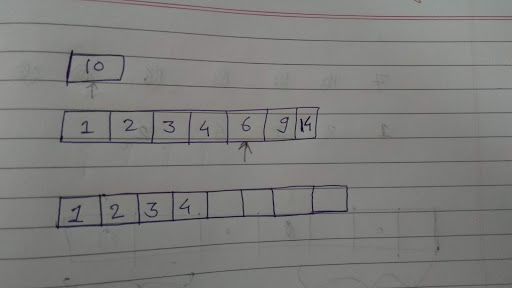 10
1 2 3 4 6 9 14
1 2 3 4